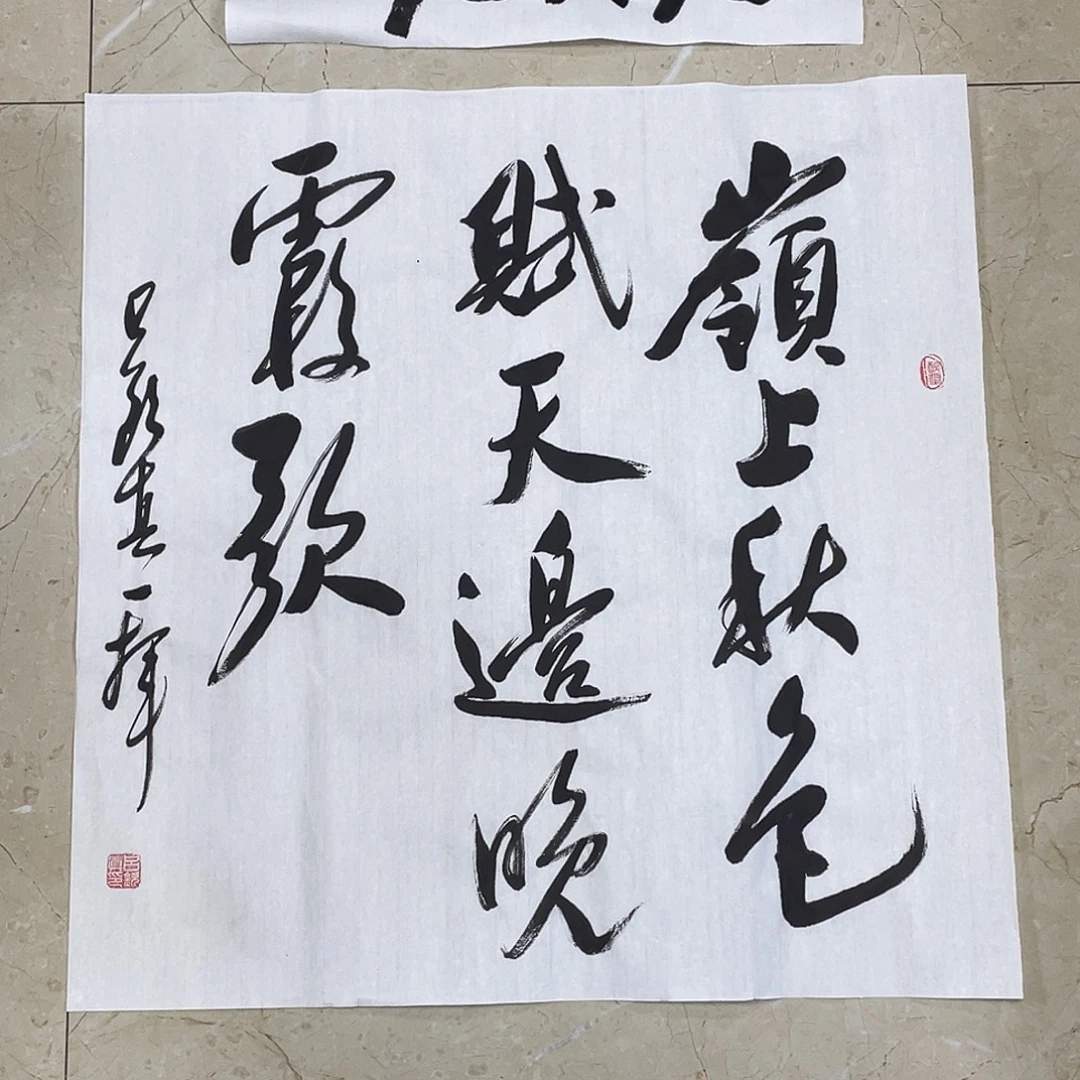 嶺上秋色
賦天邊晚
霞歌
吕真一揮